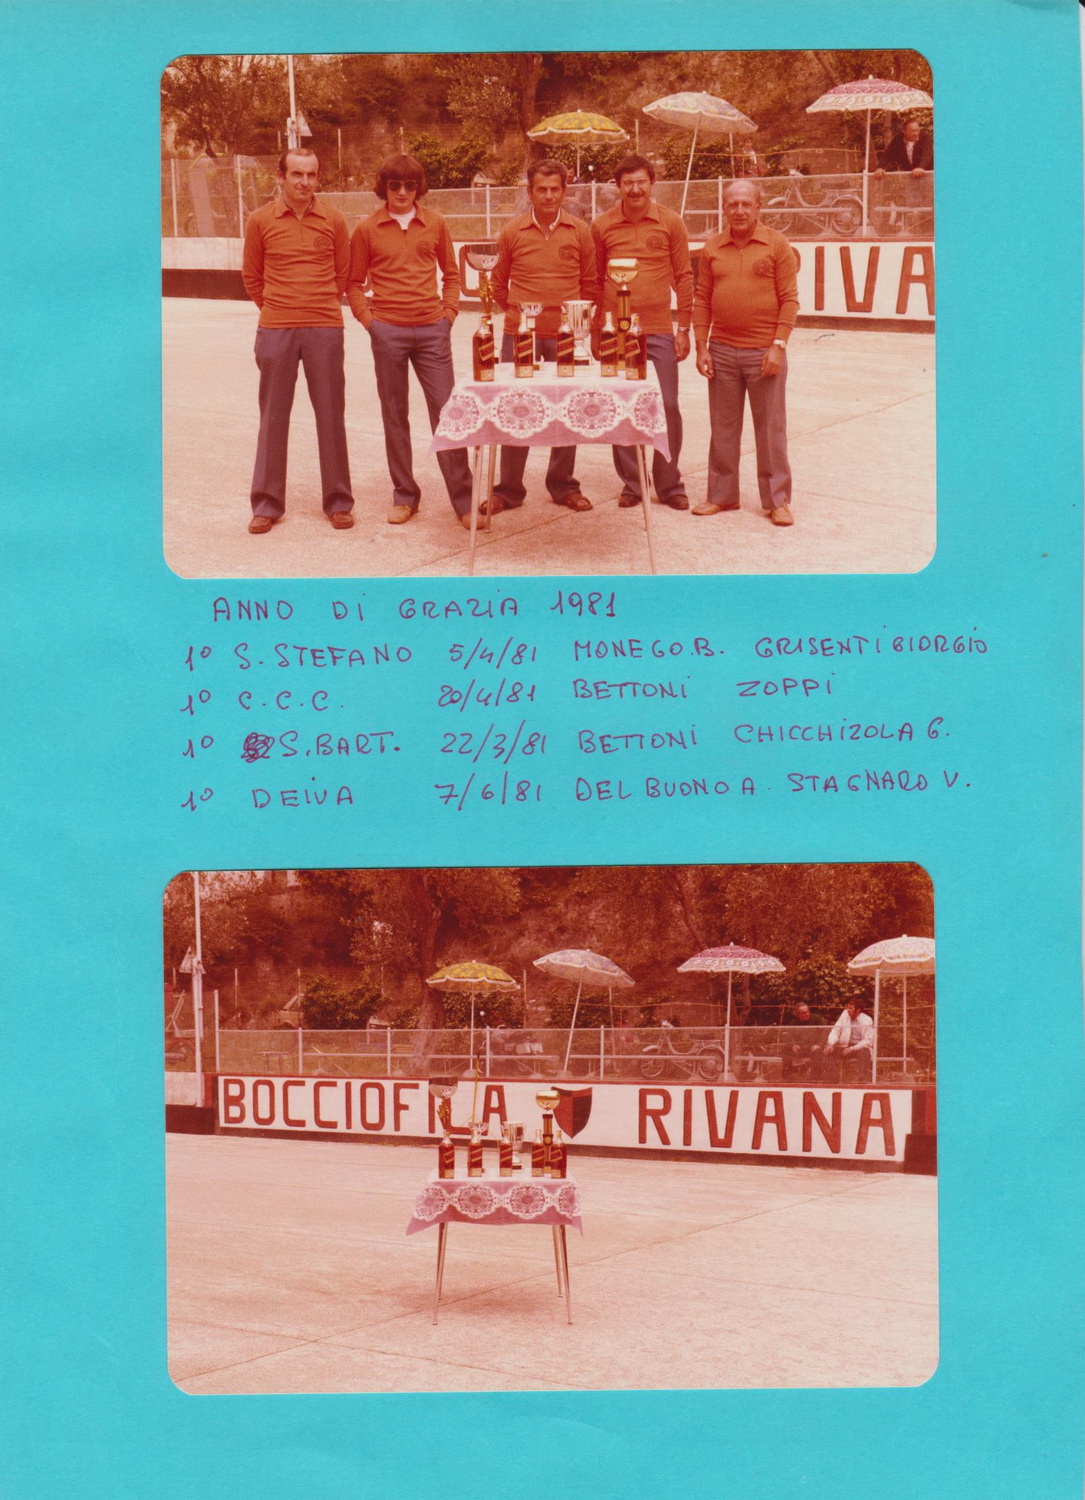 RIVA
ANNO DI GRAZIA 1981
1° S. STEFANO 5/4/81 MONEGO.B. GRISENTI GIORGIO
1° C.C.C. 20/4/81 BETTONI ZOPPI
1° S.BART. 22/3/81 BETTONI CHICCHIZOLA G.
1° DEIVA 7/6/81 DEL BUONO A. STAGNARO V.
BOCCIOFILA RIVANA